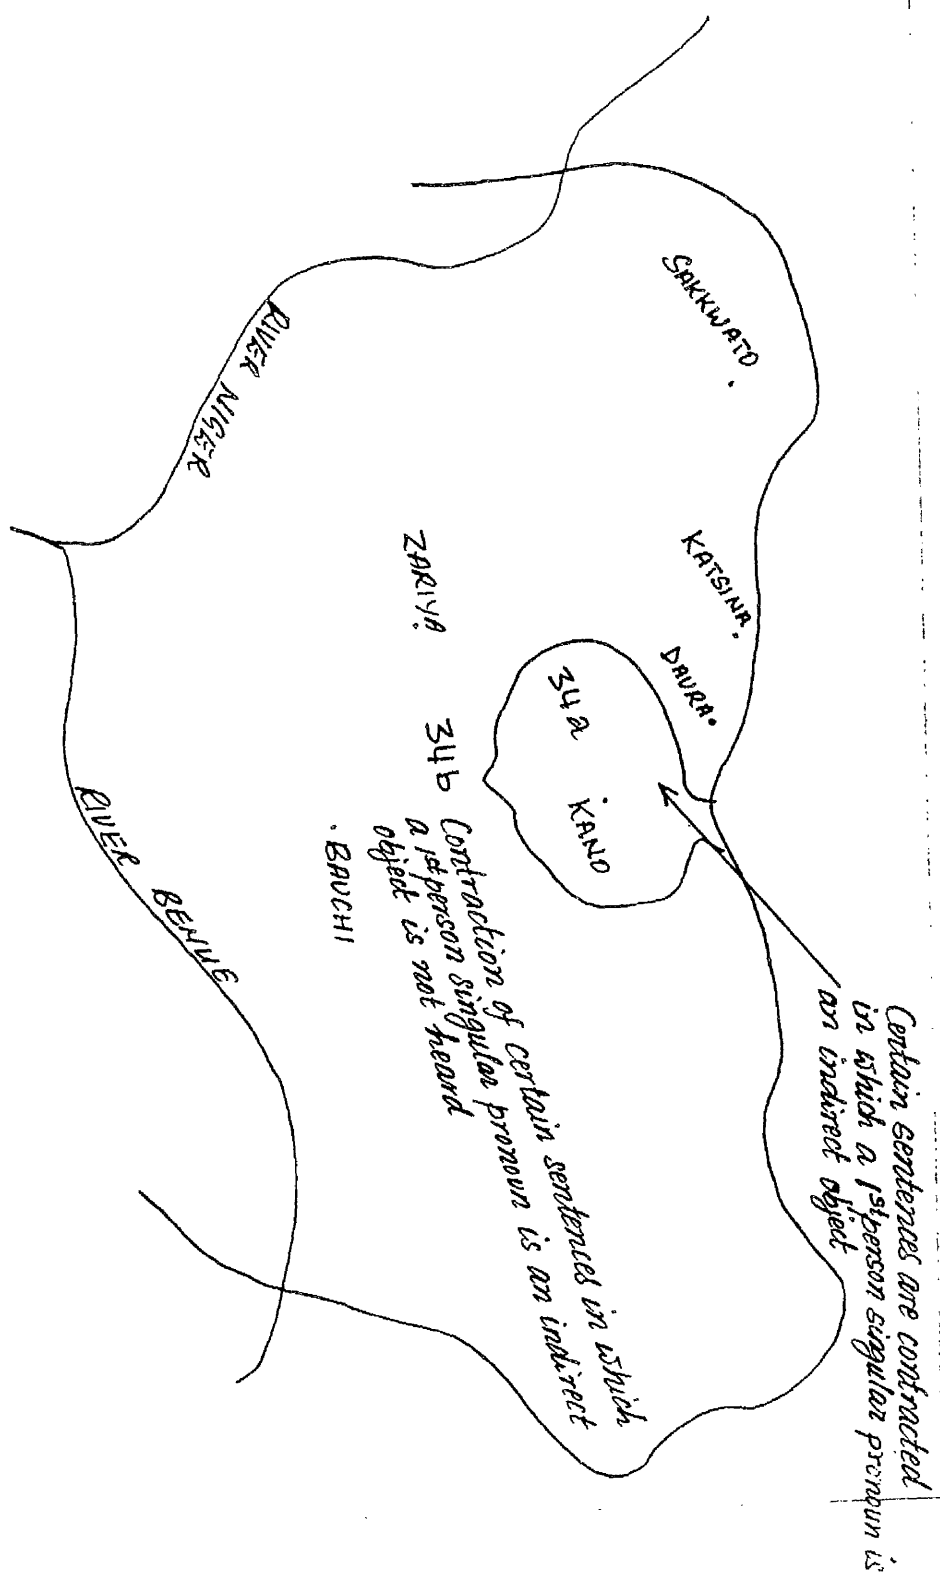 Certain sentences are contracted
in which a 1st person singular pronoun is
an indirect object
SAKKWATO
KATSINA
DAURA
34a
KANO
ZARIYA
34b
Contraction of certain sentences in which
a 1st person singular pronoun is an indirect
object is not heard
BAUCHI
RIVER NIGER
RIVER BENUE